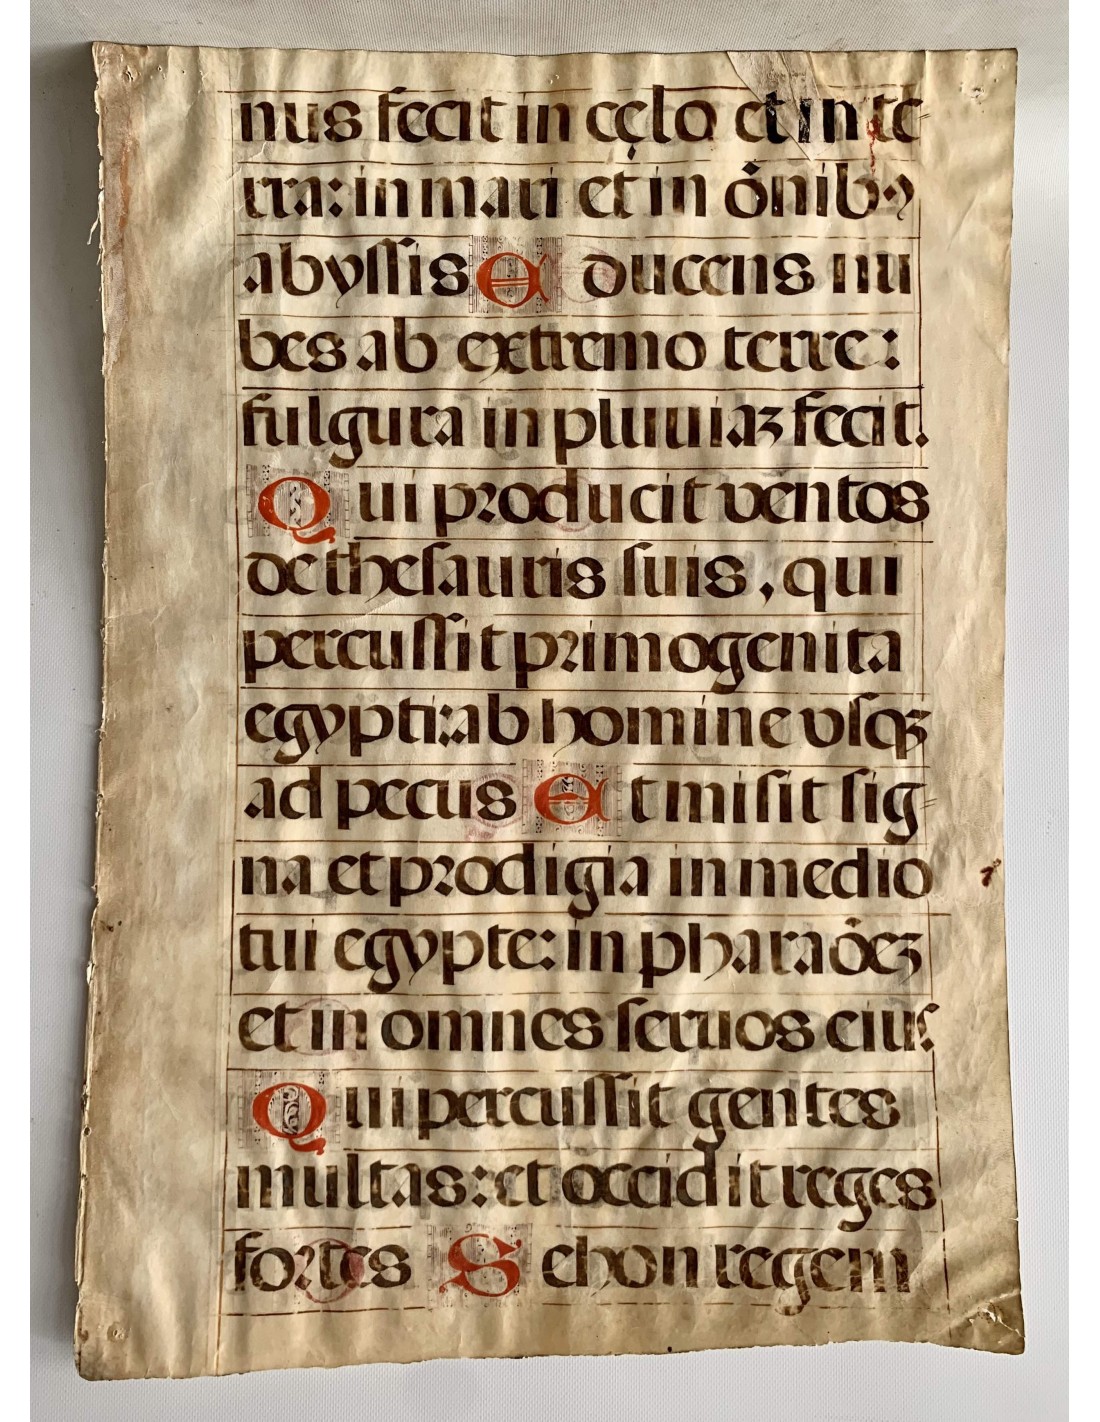 nus fecit in cęlo et in te
rra: in mari et in õnibꝰ
abyssis E ducens nu
bes ab extremo terre:
fulgura in pluuiaꝫ fecit.
Qui producit ventos
de thesauris suis, qui
percussit primogenita
egypti: ab homine vsqꝫ
ad pecus Et misit sig
na et prodigia in medio
tui egypte: in pharaõeꝫ
et in omnes seruos eius.
Qui percussit gentes
multas: et occidit reges
fortes Sehon regem